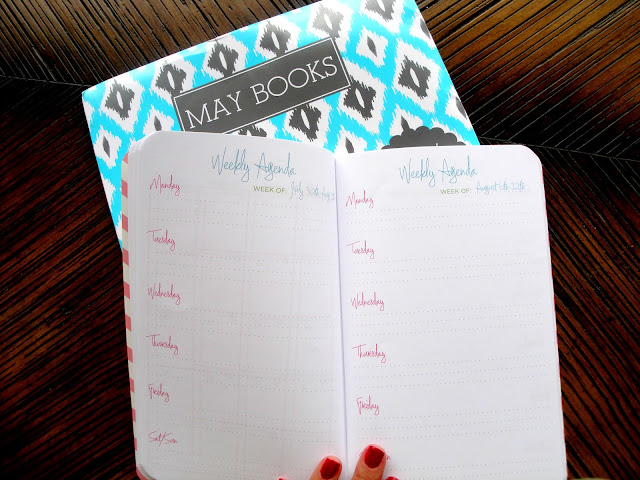 MAY BOOKS
Weekly Agenda
WEEK OF: July 30th-Aug 5
Monday
Tuesday
Wednesday
Thursday
Friday
Sat/Sun
Weekly Agenda
WEEK OF: August 6th-12th
Monday
Tuesday
Wednesday
Thursday
Friday